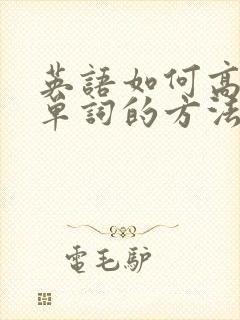 英語如何高
單詞的方法
電毛驴